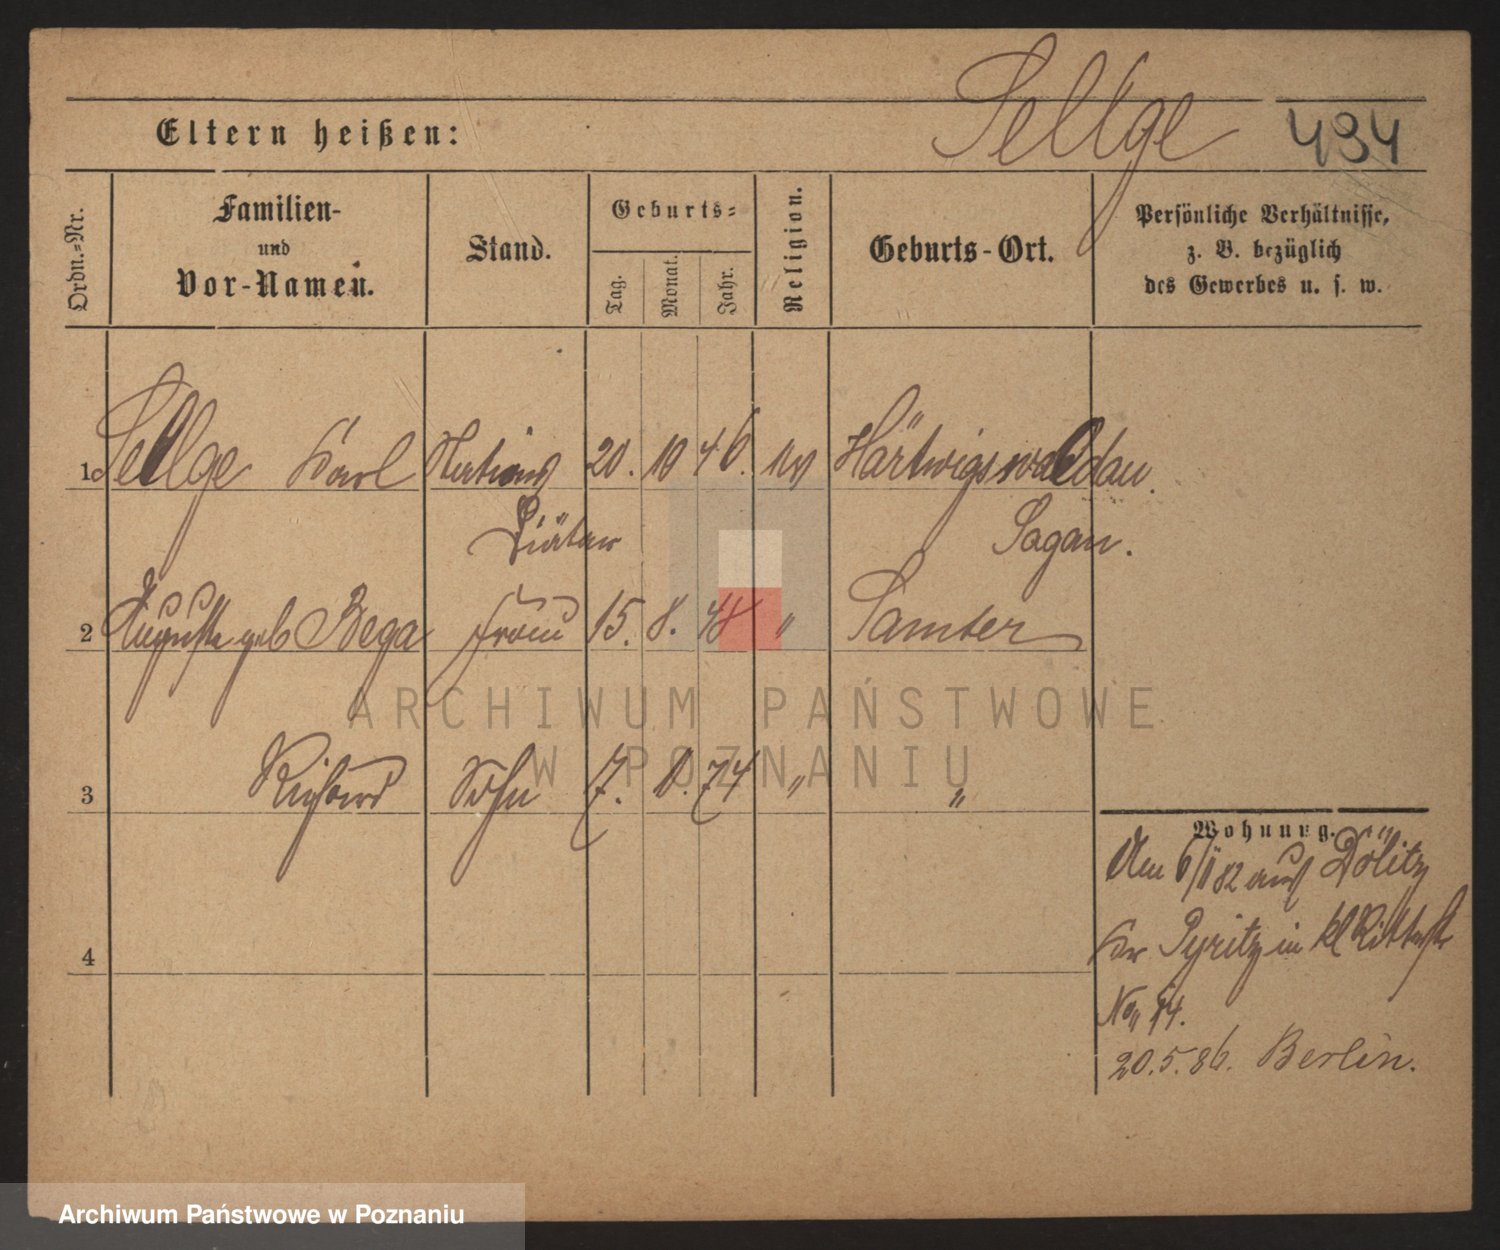 Sellge 494
Eltern heißen:
Ordn.-Nr.
Familien-
und
Vor-Namen.
Stand.
Geburts-
Tag.
Monat.
Jahr.
Religion.
Geburts-Ort.
Persönliche Verhältnisse,
z. B. bezüglich
des Gewerbes u. s. w.
1 Sellge Karl Stations 20. 10 46. ev Härtwigswaldau.
Diätar Sagan.
2 Auguste geb Bega Frau 15. 8. 48 " Samter
ARCHIWUM PAŃSTWOWE
W POZNANIU
3 Richard Sohn 7. 74 " "
Wohnung.
Am 6/1 82 aus Dölitz
4
Kr Pyritz in kl Ritterstr
No 14.
20.5.86. Berlin.
Archiwum Państwowe w Poznaniu